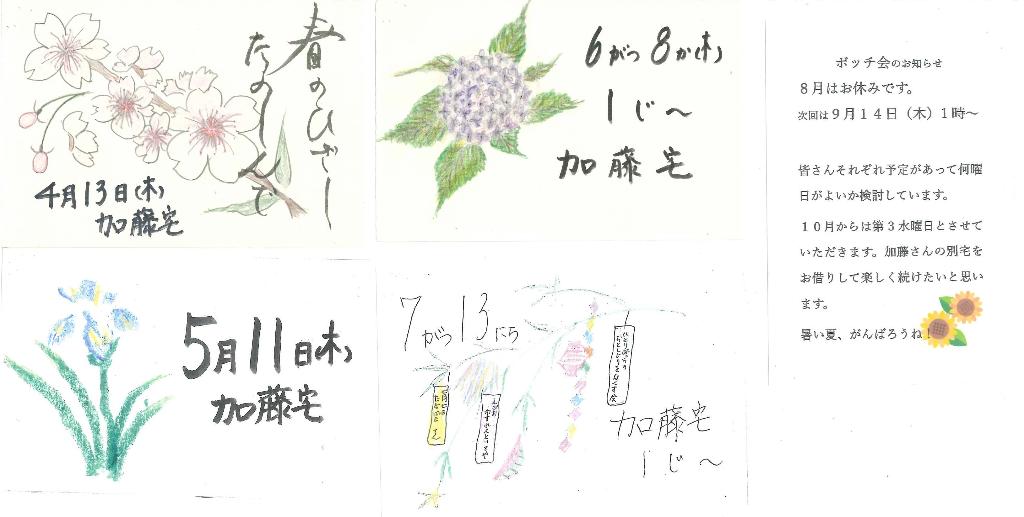 春のひざし
たのしんで
4月13日(木)
加藤宅
6がつ8か(木)
1じ〜
加藤宅
5月11日(木)
加藤宅
7がつ13にち
加藤宅
1じ〜
ボッチ会のお知らせ
８月はお休みです。
次回は９月１４日（木）１時〜
皆さんそれぞれ予定があって何曜
日がよいか検討しています。
１０月からは第３水曜日とさせて
いただきます。加藤さんの別宅を
お借りして楽しく続けたいと思い
ます。
暑い夏、がんばろうね！